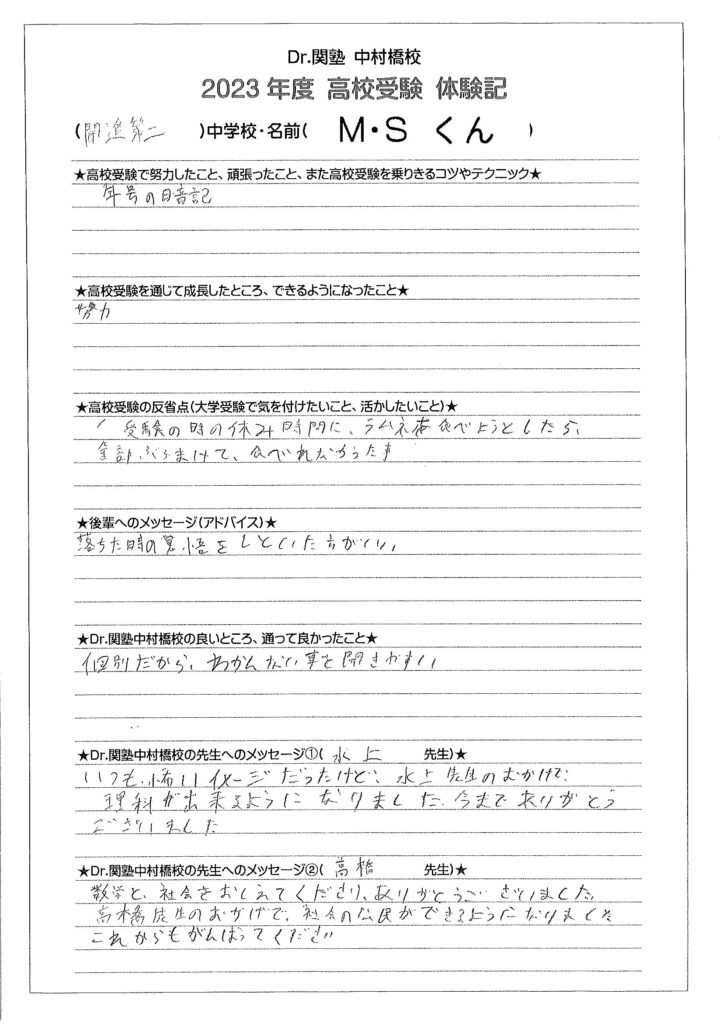 Dr.関塾 中村橋校
2023年度 高校受験 体験記
(開進第二 )中学校・名前( M・S くん )
★高校受験で努力したこと、頑張ったこと、また高校受験を乗りきるコツやテクニック★
年号の暗記
★高校受験を通じて成長したところ、できるようになったこと★
努力
★高校受験の反省点(大学受験で気を付けたいこと、活かしたいこと)★
受験の時の休み時間に、ラムネを食べようとしたら、
全部ぶちまけて、食べれなかった事
★後輩へのメッセージ(アドバイス)★
落ちた時の覚悟をしといた方がいい。
★Dr.関塾中村橋校の良いところ、通って良かったこと★
個別だから、わかんない事を聞きやすい
★Dr.関塾中村橋校の先生へのメッセージ①( 水上 先生)★
いつも怖いイメージだったけど、水上先生のおかげで
理科が出来るようになりました。今までありがとう
ございました
★Dr.関塾中村橋校の先生へのメッセージ②( 高橋 先生)★
数学と、社会をおしえてくださり、ありがとうございました。
高橋先生のおかげで、社会の公民ができるようになりました
これからもがんばってください